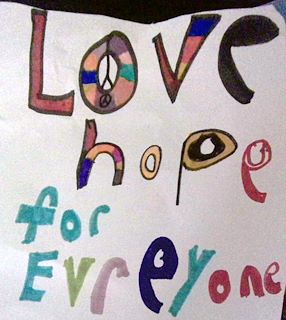 Love
hope
for
Evreyone